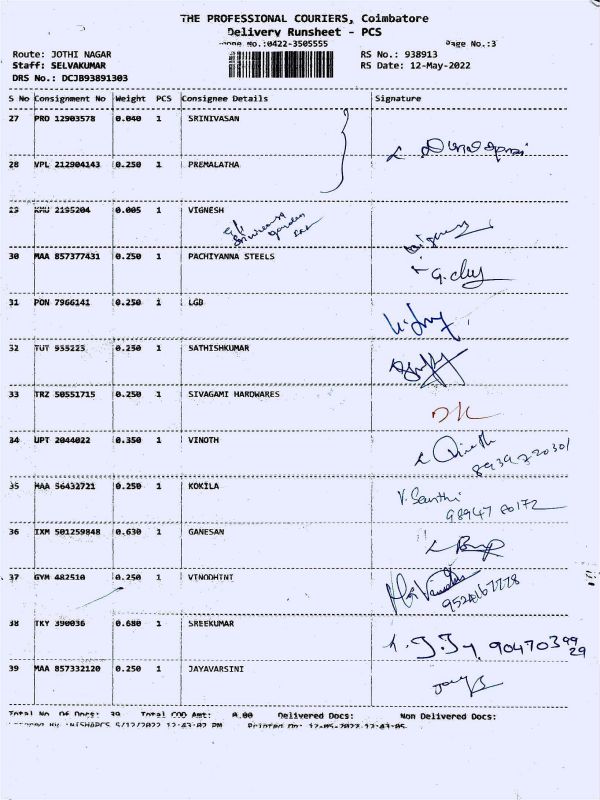 THE PROFESSIONAL COURIERS, Coimbatore
Delivery Runsheet - PCS
Phone No.:0422-3505555 Page No.:3
Route: JOTHI NAGAR RS No.: 938913
Staff: SELVAKUMAR RS Date: 12-May-2022
DRS No.: DCJB93891303
S No Consignment No Weight PCS Consignee Details Signature
27 PRO 12903578 0.040 1 SRINIVASAN
28 VPL 212904143 0.250 1 PREMALATHA
29 KMU 2195204 0.005 1 VIGNESH
garden
30 MAA 857377431 0.250 1 PACHIYANNA STEELS
31 PON 7966141 0.250 1 LGB
32 TUT 955225 0.250 1 SATHISHKUMAR
33 TRZ 50551715 0.250 1 SIVAGAMI HARDWARES
34 UPT 2044022 0.350 1 VINOTH Vinoth
35 MAA 56432721 0.250 1 KOKILA V. Santhi
98947 80172
36 IXM 501259848 0.630 1 GANESAN
37 GYM 482510 0.250 1 VINODHINI
38 TKY 390036 0.680 1 SREEKUMAR 9047039929
39 MAA 857332120 0.250 1 JAYAVARSINI
Total No. Of Docs: 39 Total COD Amt: 0.00 Delivered Docs: Non Delivered Docs:
5/12/2022 12:43:02 PM Printed On: 12-05-2022 12:43:05